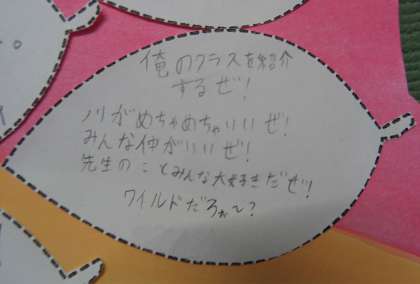 俺のクラスを紹介
するぜ!
ノリがめちゃめちゃいいぜ!
みんな仲がいいぜ!
先生のことみんな大好きだぜ!
ワイルドだろぉ〜?